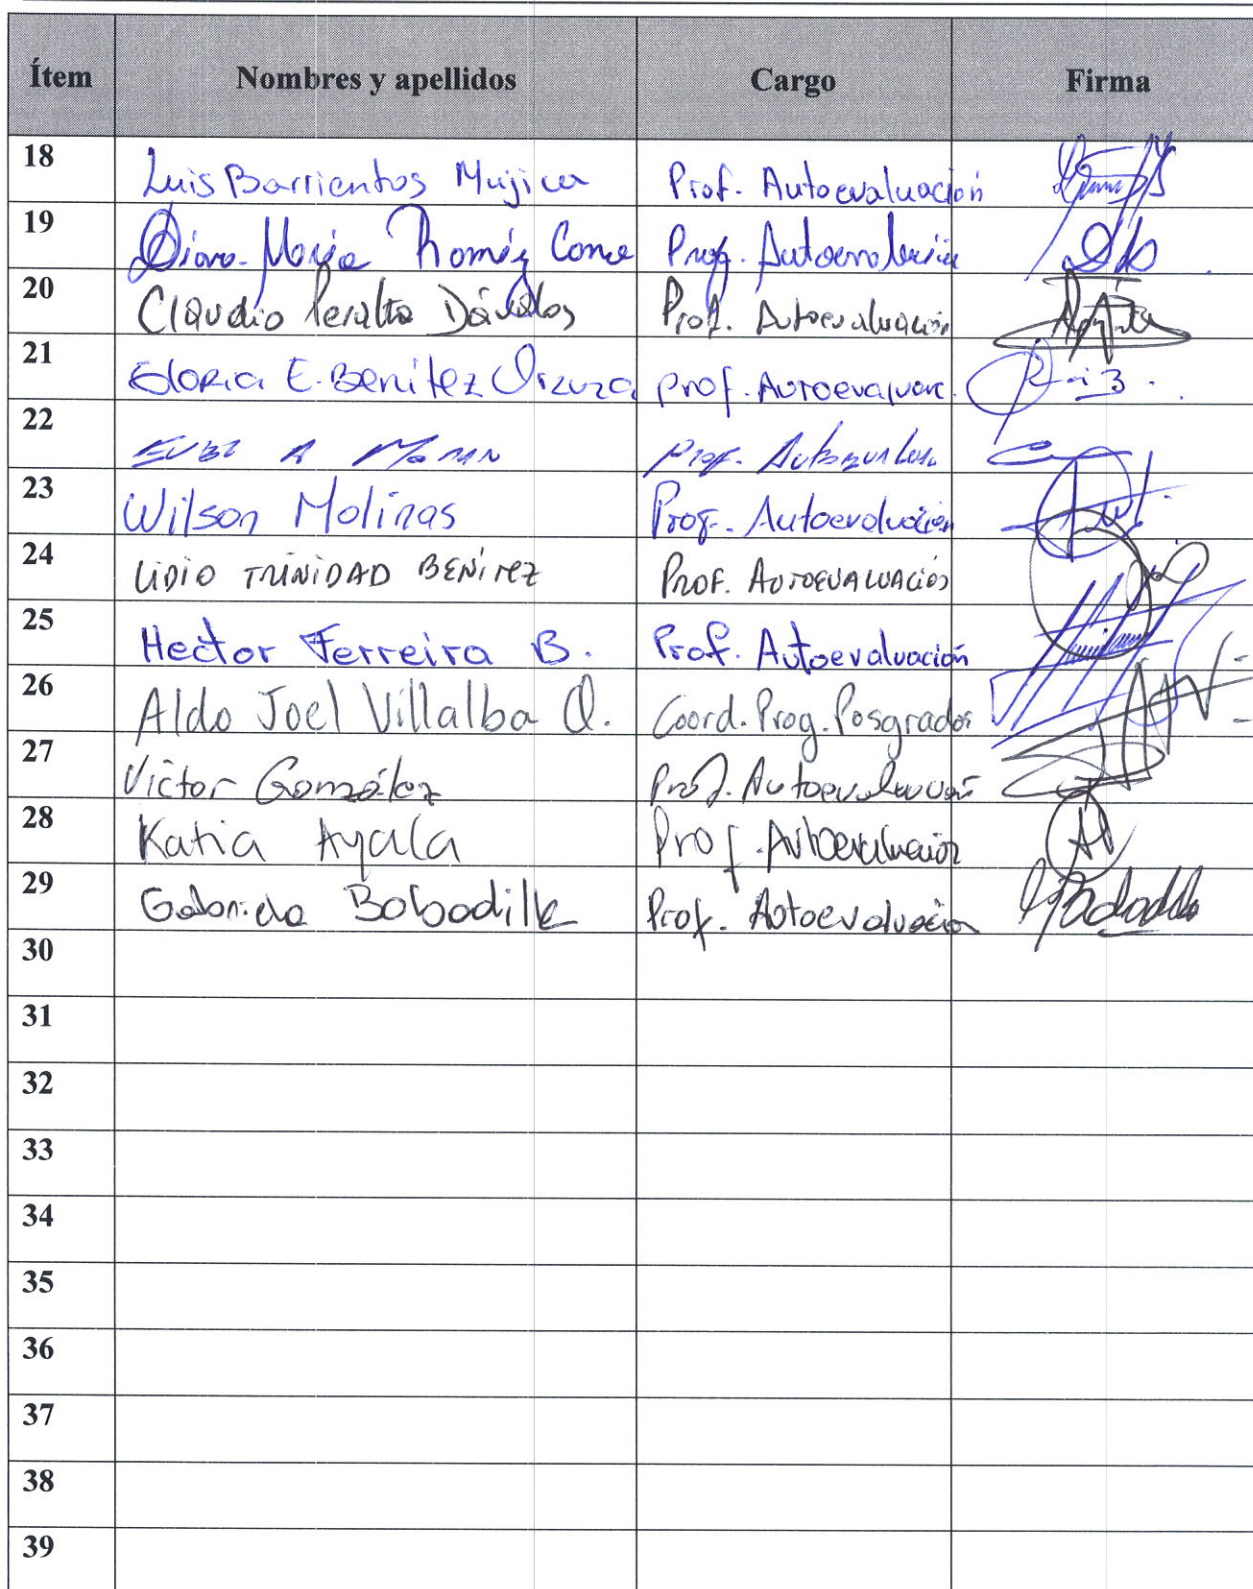 Ítem Nombres y apellidos Cargo Firma
18 Luis Barrientos Mujica Prof. Autoevaluación
19 María Prof. Autoevaluación
20 Claudio Peralta Dávalos Prof. Autoevaluación
21 Gloria E. Benítez Prof. Autoevaluac.
22 A Prof.
23 Wilson Molinas Prof. Autoevaluación
24 LIDIO TRINIDAD BENÍTEZ PROF. AUTOEVALUACIÓN
25 Hector Ferreira B. Prof. Autoevaluación
26 Aldo Joel Villalba Q. Coord. Prog. Posgrados
27 Victor González Prof. Autoevaluación
28 Katia Ayala Prof. Autoevaluación
29 Gabriela Bobadilla Prof. Autoevaluación
30
31
32
33
34
35
36
37
38
39